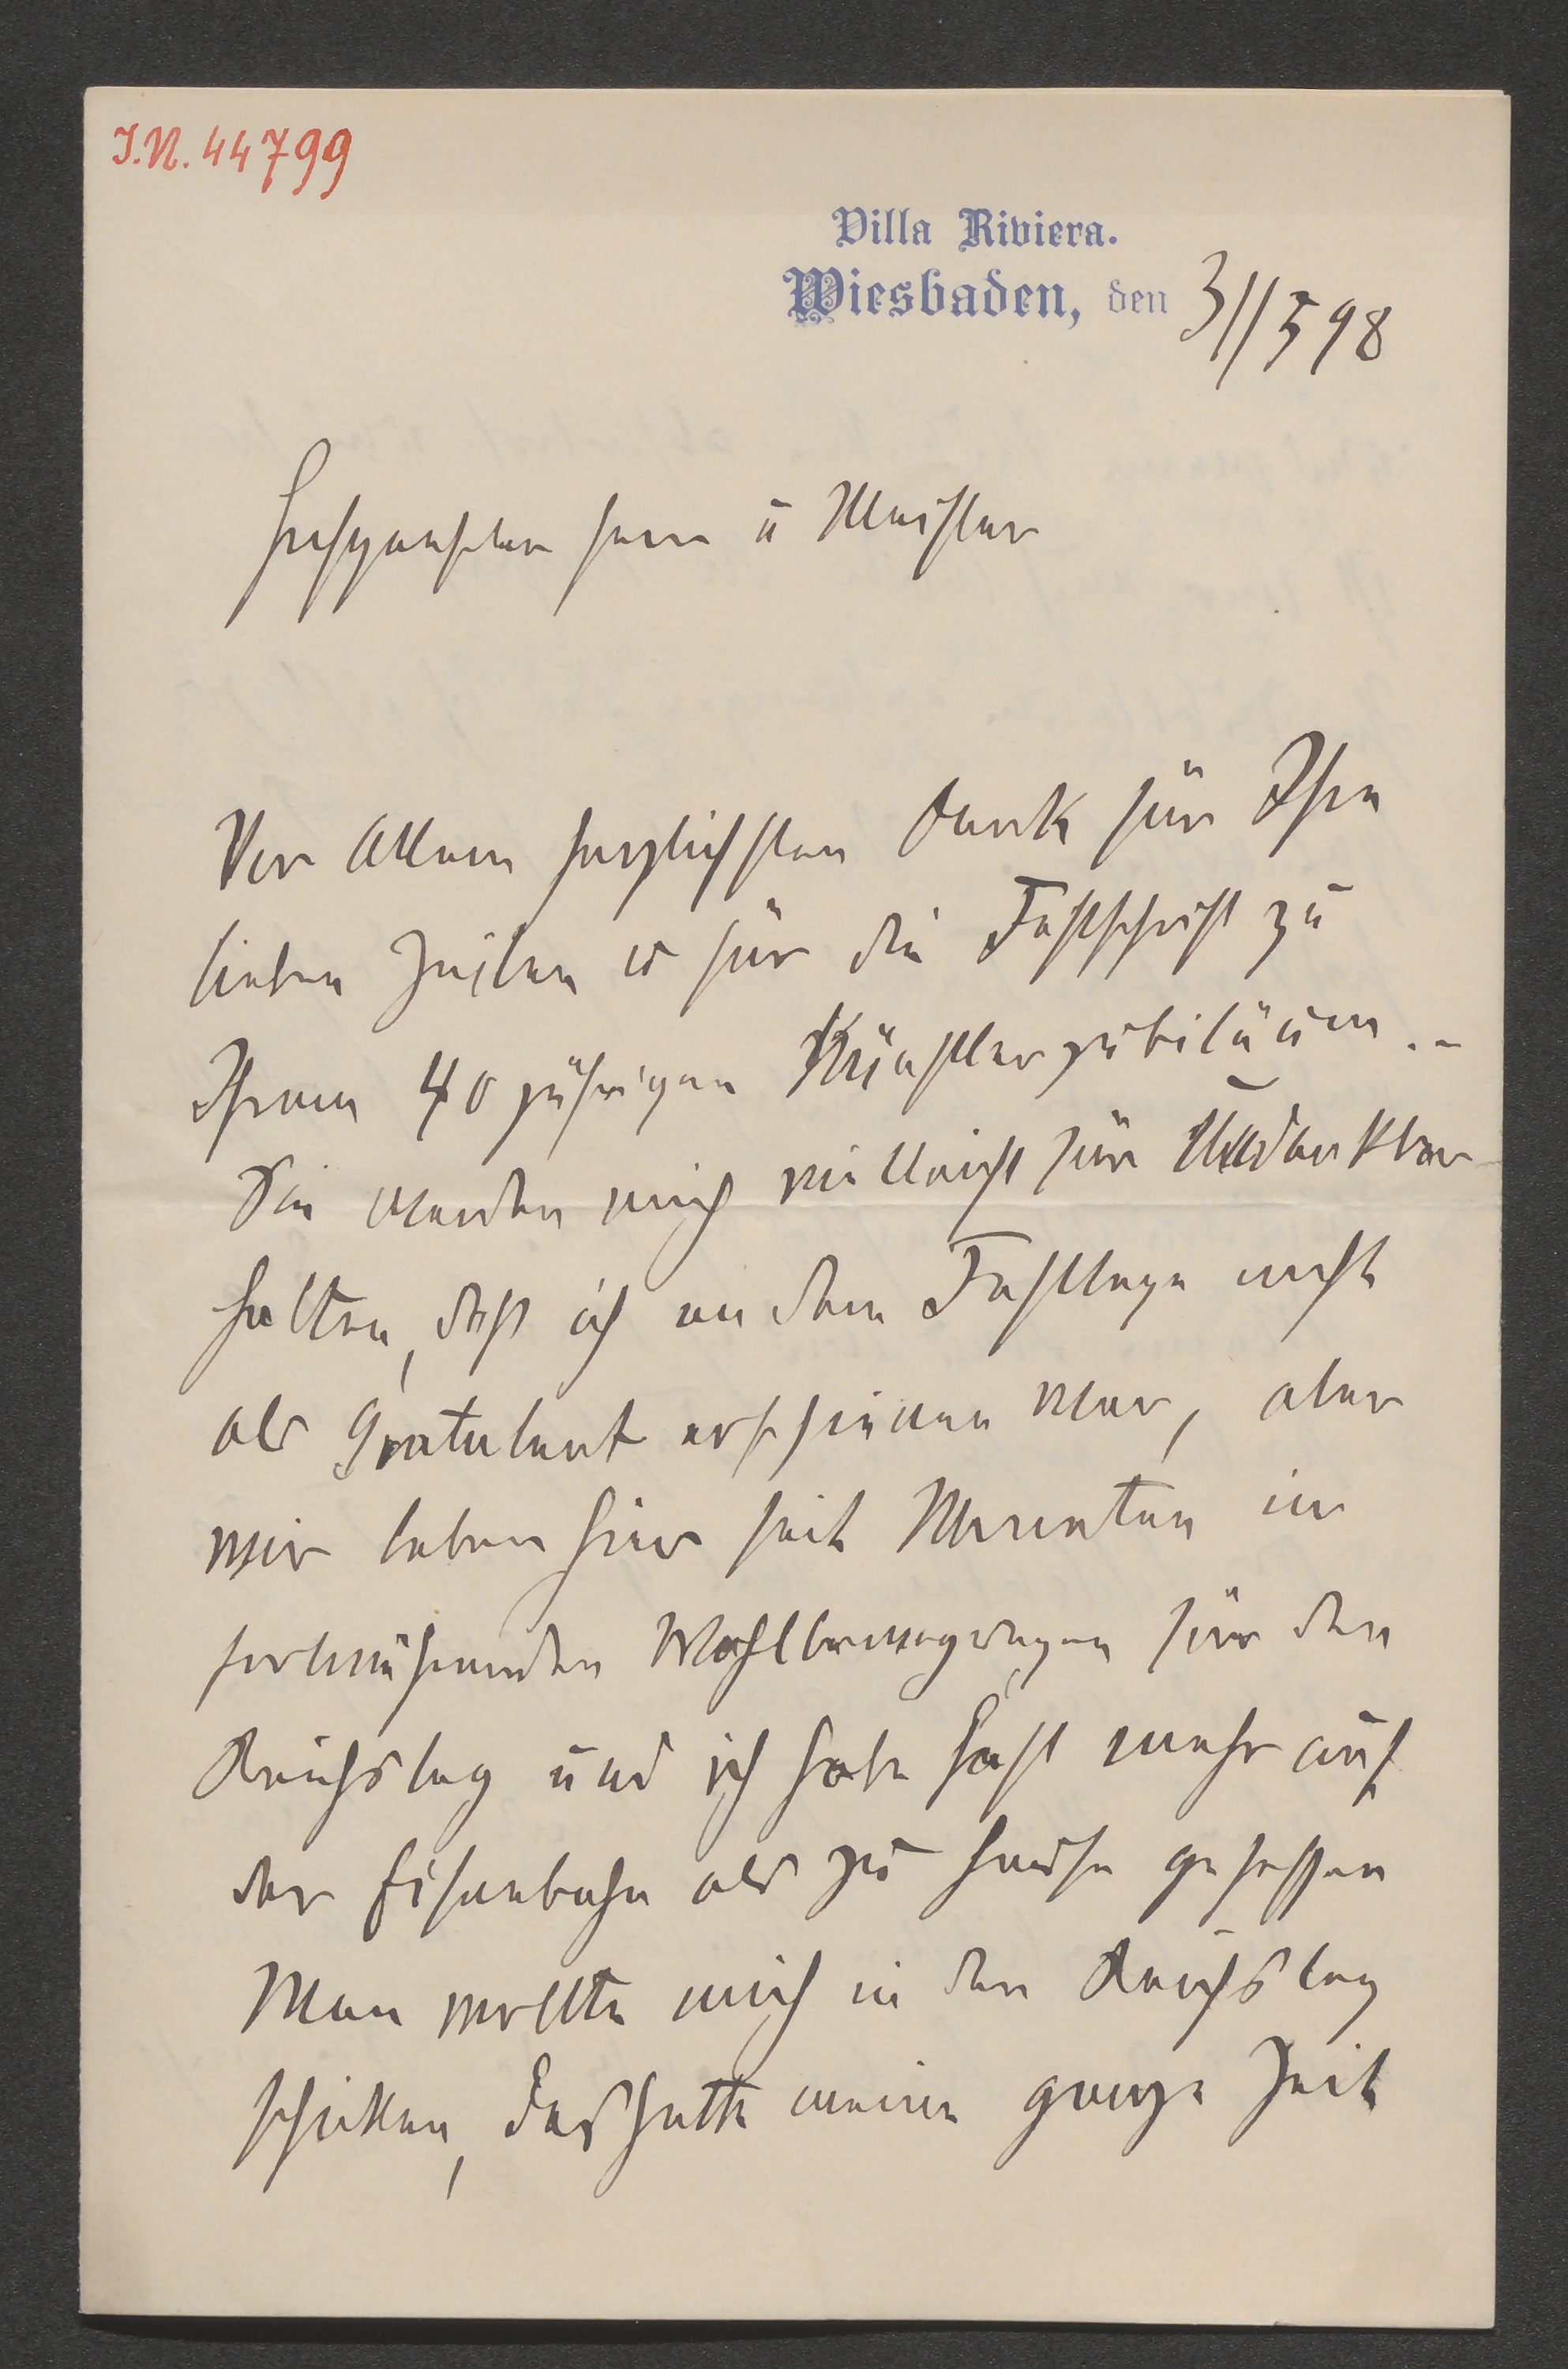 I.N. 44799
Villa Riviera.
Wiesbaden, den 31/5 98
Hochgeehrter Herr u Meister
Vor Allem herzlichsten Dank für Ihre
lieben Zeilen u für die Festschrift zu
Ihrem 40 jährigen Künstlerjubiläum. -
Sie werden mich vielleicht für Undankbar
halten, daß ich an dem Festtage nicht
als Gratulant erschienen war, aber
wir leben hier seit Monaten in
fortwährenden Wahlbewegungen für den
Reichstag und ich habe fast mehr auf
der Eisenbahn als zu Hause gesessen
Man wollte mich in den Reichstag
schicken, das hatte meine ganze Zeit